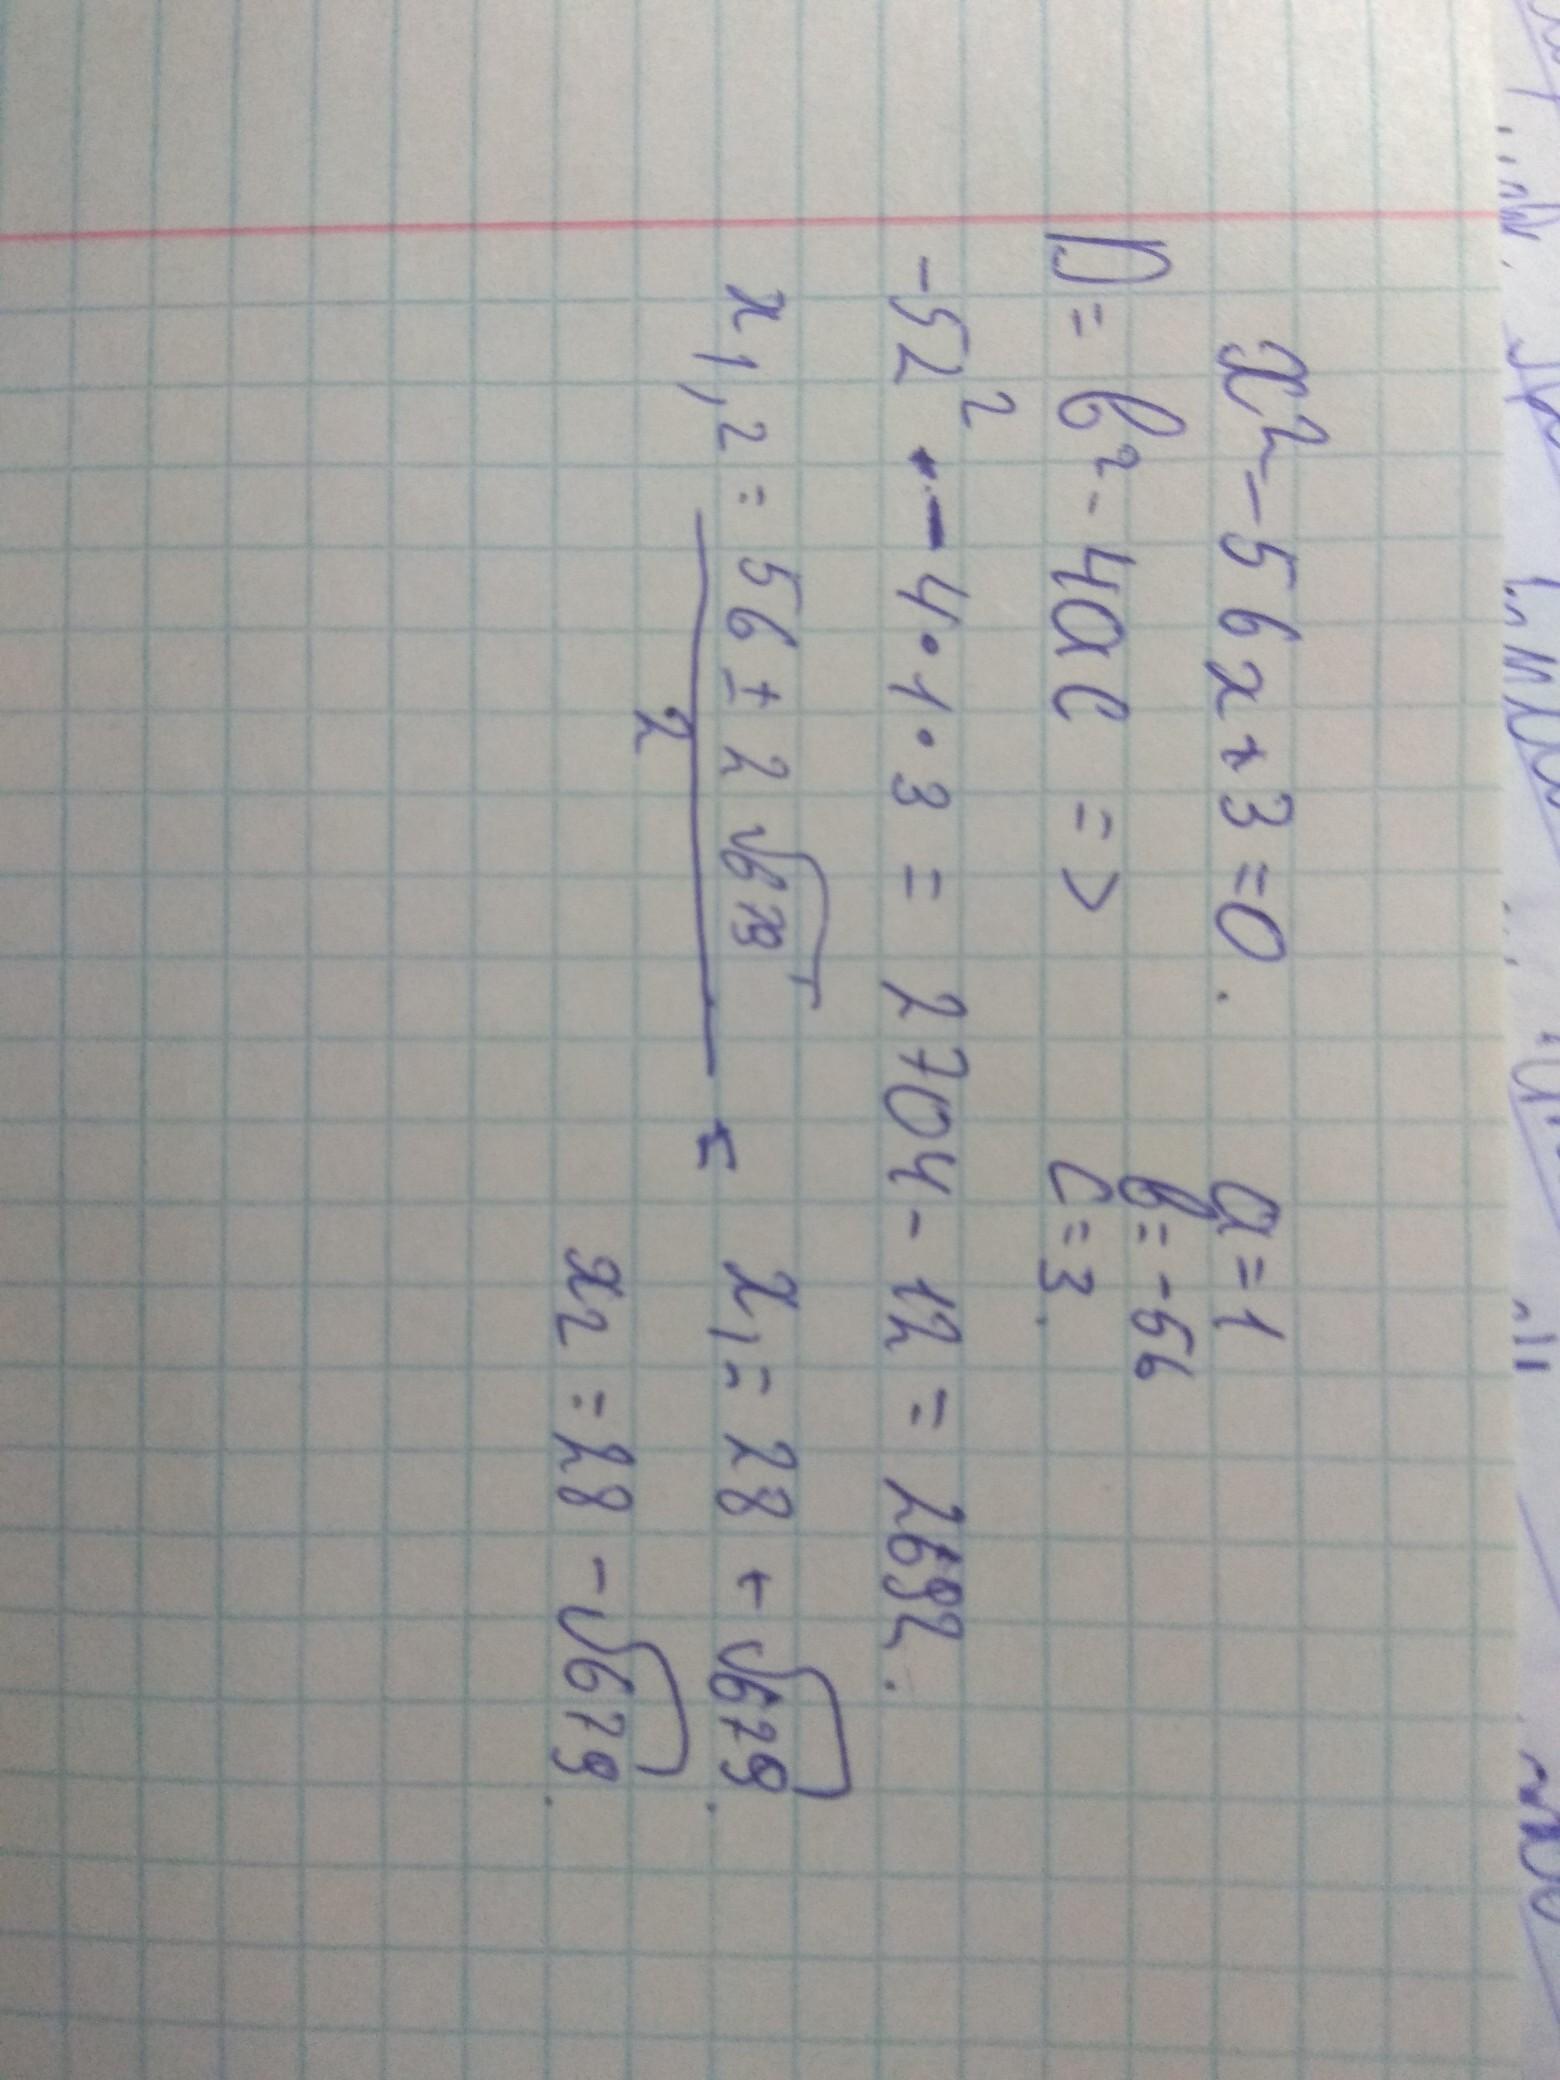 x² - 56x + 3 = 0. a = 1
b = -56
D = b² - 4ac => c = 3.
-52² - 4 • 1 • 3 = 2704 - 12 = 2692.
x1,2 = (56 ± 2√679)/2 = x1 = 28 + √679.
x2 = 28 - √679.